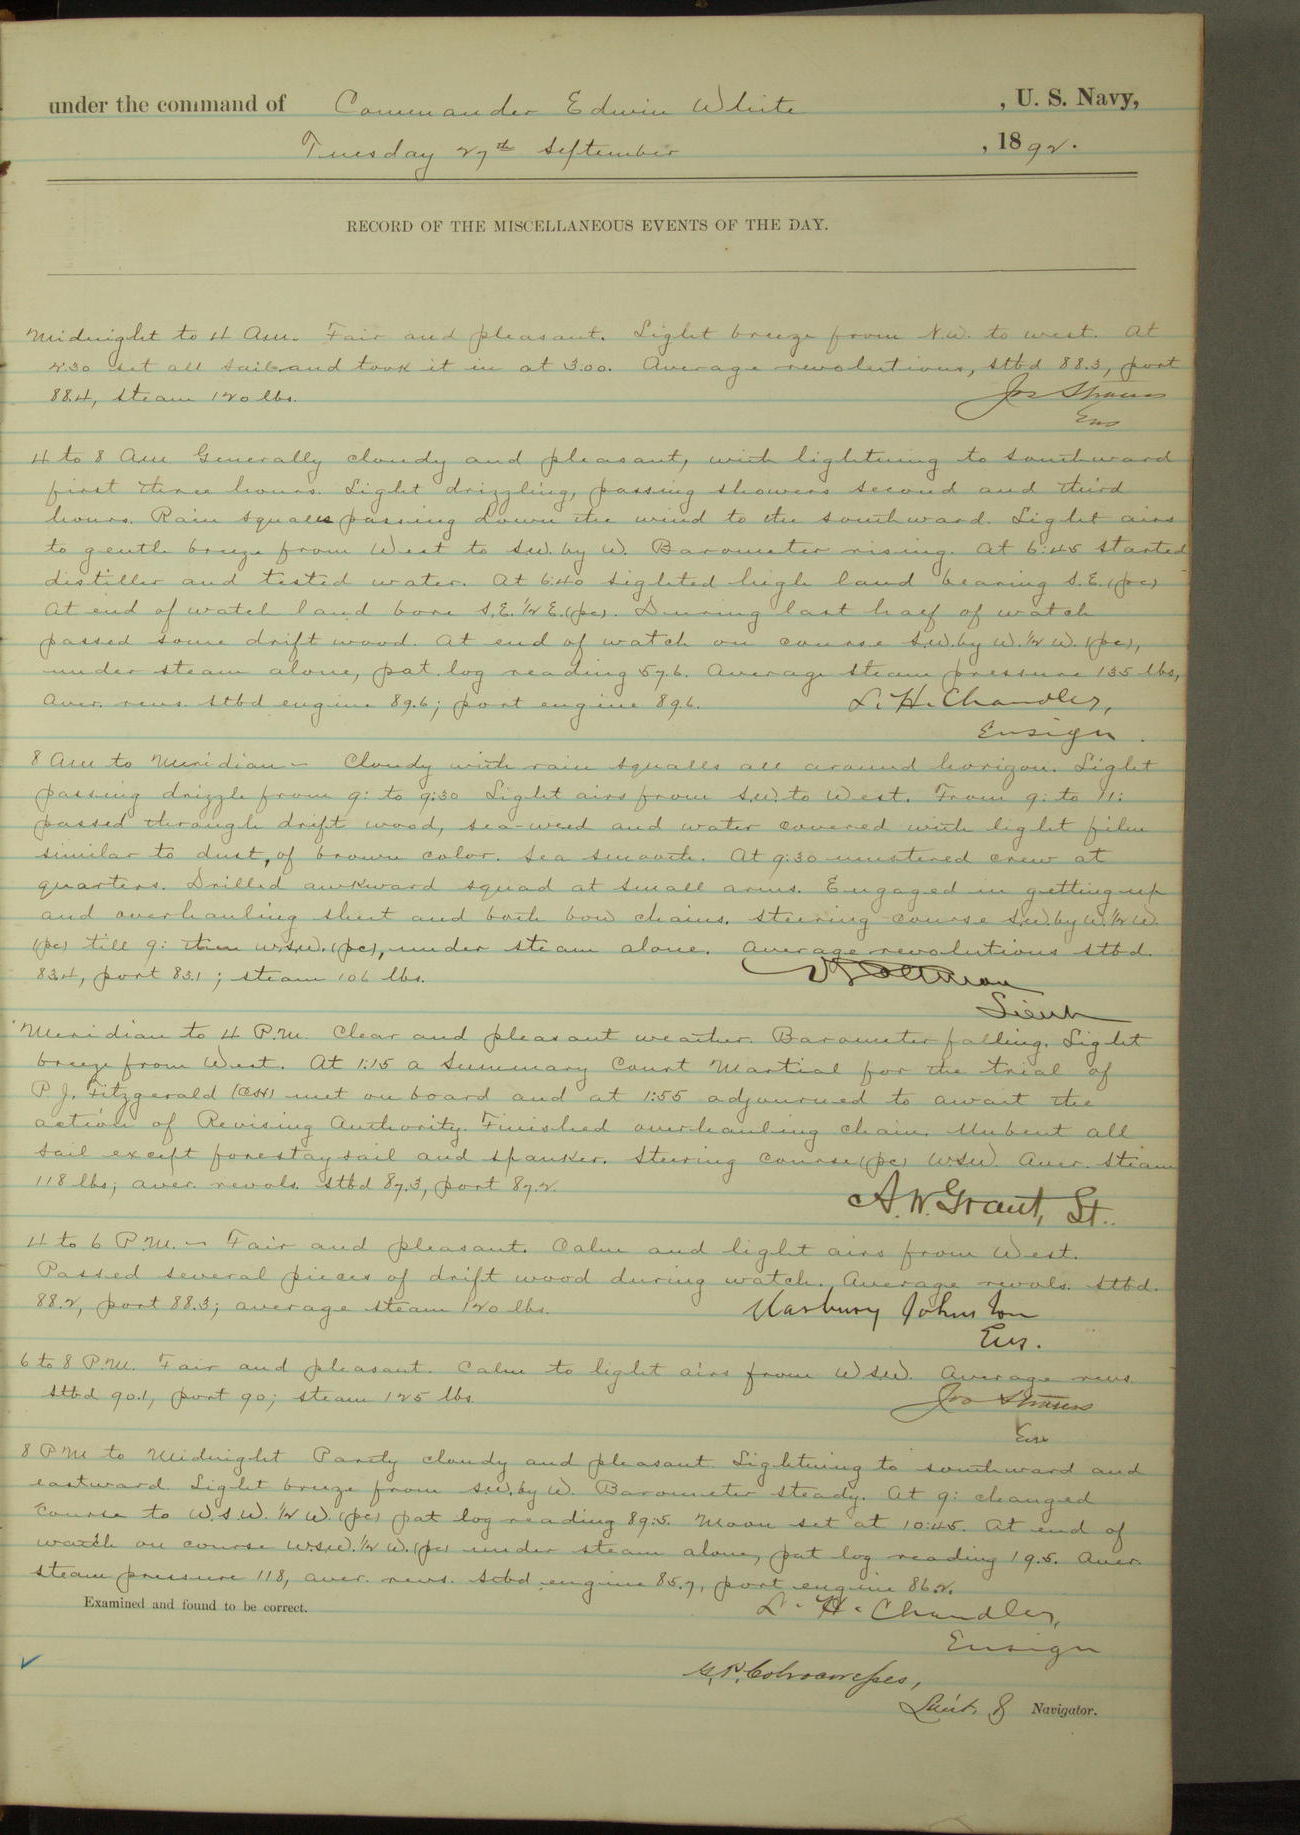 under the command of Commander Edwin White, U. S. Navy,
Tuesday 27th September, 1892.
RECORD OF THE MISCELLANEOUS EVENTS OF THE DAY.
Midnight to 4 Am. Fair and pleasant. Light breeze from N.W. to west. At
2:30 set all sail and took it in at 3:00. Average revolutions, stbd 88.3, port
88.4, steam 120 lbs. Jos Strauss
Ens
4 to 8 Am Generally cloudy and pleasant, with lightning to southward
first three hours. Light drizzling, passing showers second and third
hours. Rain squalls passing down the wind to the southward. Light airs
to gentle breeze from West to S.W. by W. Barometer rising. At 6:45 started
distiller and tested water. At 6:40 sighted high land bearing S.E. (pc)
At end of watch land bore S.E. 1/2 E. (pc). During last half of watch
passed some drift wood. At end of watch on course S.W. by W. 1/2 W. (pc),
under steam alone, pat. log reading 57.6. Average steam pressure 135 lbs,
Aver. revs. stbd engine 89.6; port engine 89.6. L. H. Chandler,
Ensign.
8 Am to Meridian – Cloudy with rain squalls all around horizon. Light
passing drizzle from 9: to 9:30 Light airs from S.W. to West. From 9: to 11:
passed through drift wood, sea-weed and water covered with light film
similar to dust, of brown color. Sea smooth. At 9:30 mustered crew at
quarters. Drilled awkward squad at small arms. Engaged in getting up
and overhauling sheet and both bow chains. Steering course S.W. by W. 1/2 W.
(pc) till 9: then W.S.W. (pc), under steam alone. Average revolutions stbd.
83.4, port 83.1; steam 106 lbs.
Lieut
Meridian to 4 P.M. Clear and pleasant weather. Barometer falling. Light
breeze from West. At 1:15 a Summary Court Martial for the trial of
P. J. Fitzgerald met on board and at 1:55 adjourned to await the
action of Revising Authority. Finished overhauling chain. Unbent all
sail except forestaysail and spanker. Steering course (pc) WSW. Aver. steam
118 lbs; aver. revols. stbd 87.3, port 87.2. A. W. Grant, Lt.
4 to 6 P.M. – Fair and pleasant. Calm and light airs from West.
Passed several pieces of drift wood during watch. Average revols. stbd.
88.2, port 88.3; average steam 120 lbs. Marbury Johnston
Ens.
6 to 8 P.M. Fair and pleasant. Calm to light airs from WSW. Average revs.
stbd 90.1, port 90; steam 125 lbs. Jos Strauss
Ens
8 P M to Midnight Partly cloudy and pleasant Lightning to southward and
eastward. Light breeze from S.W. by W. Barometer steady. At 9: changed
course to W.S.W. 1/2 W. (pc) pat log reading 89.5. Moon set at 10:45. At end of
watch on course W.S.W. 1/2 W. (pc) under steam alone, pat log reading 19.5. Aver.
steam pressure 118, aver. revs. stbd engine 85.7, port engine 86.2.
Examined and found to be correct. L. H. Chandler,
Ensign
G. P. Colvocoresses,
Lieut. & Navigator.